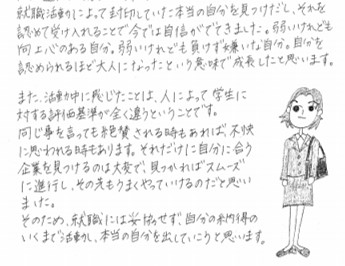 就職活動によって封印していた本当の自分を見つけだし、それを
認めて受け入れることで今では自信がでてきました。弱いけれども
向上心のある自分。弱いけれども負けず嫌いな自分。自分を
認められるほど大人になったという意味で成長したと思います。
また、活動中に感じたことは、人によって学生に
対する評価基準が全く違うということです。
同じ事を言っても絶賛される時もあれば、不快
に思われる時もあります。それだけに自分に合う
企業を見つけるのは大変で、見つかればスムーズ
に進行し、その先もうまくやっていけるのだと思い
ました。
そのため、就職には妥協せず、自分の納得の
いくまで活動し、本当の自分を出していこうと思います。